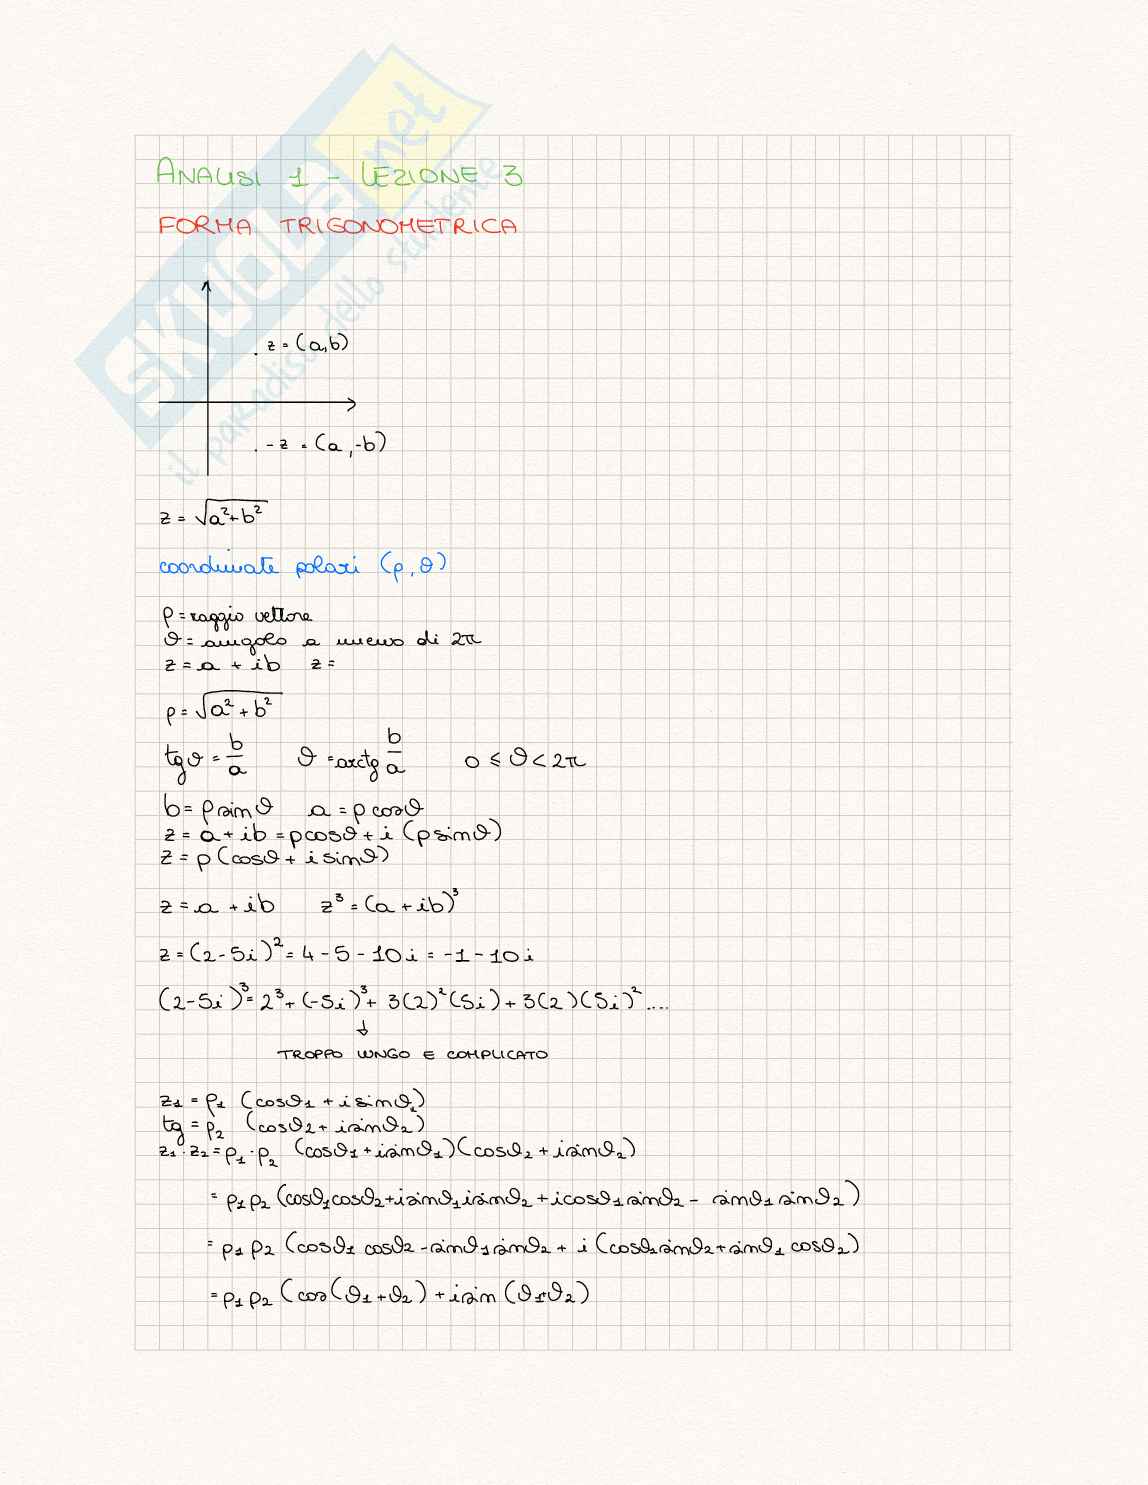 SKUOLA.net
il paradiso dello studente
ANALISI 1 - LEZIONE 3
FORMA TRIGONOMETRICA
z = (a,b)
-z = (a,-b)
z = √a²+b²
coordinate polari (ρ,θ)
ρ = raggio vettore
θ = angolo a meno di 2π
z = a + ib z =
ρ = √a² + b²
tgθ = b/a θ = arctg b/a 0 ≤ θ < 2π
b = ρ sinθ a = ρ cosθ
z = a + ib = ρcosθ + i (ρ sinθ)
z = ρ (cosθ + i sinθ)
z = a + ib z³ = (a + ib)³
z = (2-5i)² = 4 - 5 - 10i = -1 - 10i
(2-5i)³ = 2³ + (-5i)³ + 3(2)²(5i) + 3(2)(5i)² ....
↓
TROPPO LUNGO E COMPLICATO
z₁ = ρ₁ (cosθ₁ + i sinθ₁)
tg = ρ₂ (cosθ₂ + i sinθ₂)
z₁ · z₂ = ρ₁ · ρ₂ (cosθ₁ + i sinθ₁)(cosθ₂ + i sinθ₂)
= ρ₁ρ₂ (cosθ₁cosθ₂ + i sinθ₁ i sinθ₂ + i cosθ₁ sinθ₂ - sinθ₁ sinθ₂)
= ρ₁ ρ₂ (cosθ₁ cosθ₂ - sinθ₁ sinθ₂ + i (cosθ₁ sinθ₂ + sinθ₁ cosθ₂)
= ρ₁ ρ₂ (cos(θ₁ + θ₂) + i sin (θ₁+θ₂)